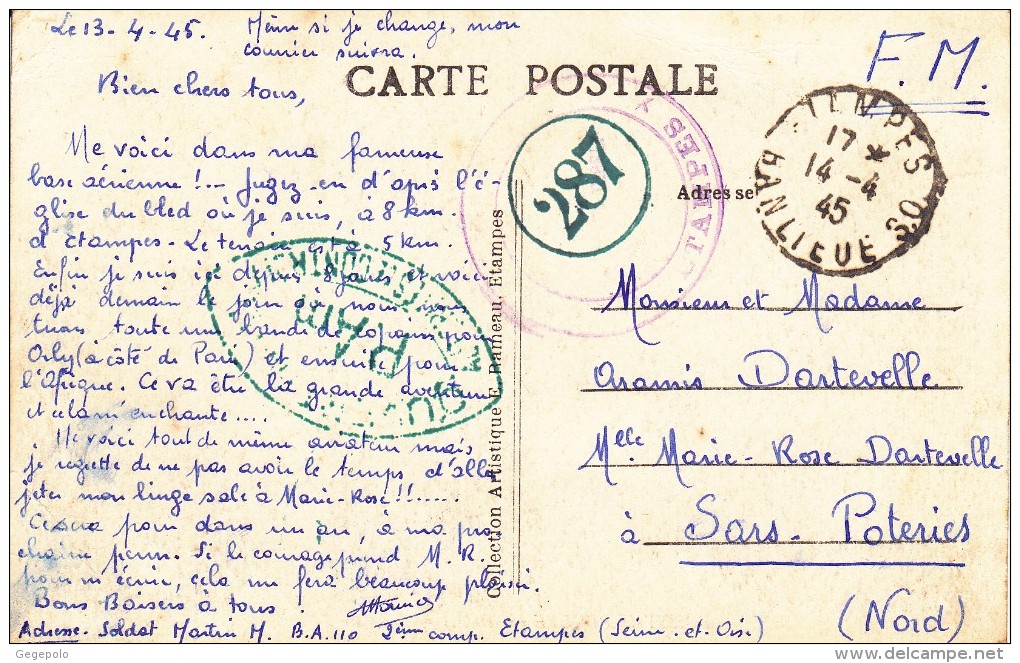 Le 13-4-45. Même si je change, mon
courrier suivra.
Bien chers tous,
Me voici dans ma fameuse
base aérienne !.. Jugez-en d'après l'é-
glise du bled où je suis, à 8 km.
d'étampes. Le terrain est à 5 km.
Enfin je suis ici depuis 8 jours et voici
déjà demain le jour où nous nous
tirons toute une bande de copains pour
Orly (à côté de Paris) et ensuite pour
l'Afrique. Ce va être la grande aventure
et cela m'enchante.....
Me voici tout de même aviateur mais
je regrette de ne pas avoir le temps d'aller
jeter mon linge sale à Marie-Rose!!......
Ce sera pour dans un an, à ma pro
chaine perm. Si le courage prend M. R.
pour m'écrire, cela me fera beaucoup plaisir.
Bons Baisers à tous.
Adresse. Soldat Martin M. B.A. 110 2ème comp. Etampes (Seine-et-Oise)
CARTE POSTALE
F.M.
287
ETAMPES
ETAMPES
17 *
14 -4
45
BANLIEUE S.O.
PAR
Adresse
Collection Artistique E. Rameau, Etampes
Monsieur et Madame
Aramis Dartevelle
Melle Marie-Rose Dartevelle
à Sars-Poteries
(Nord)
Gegepolo
delcampe.net